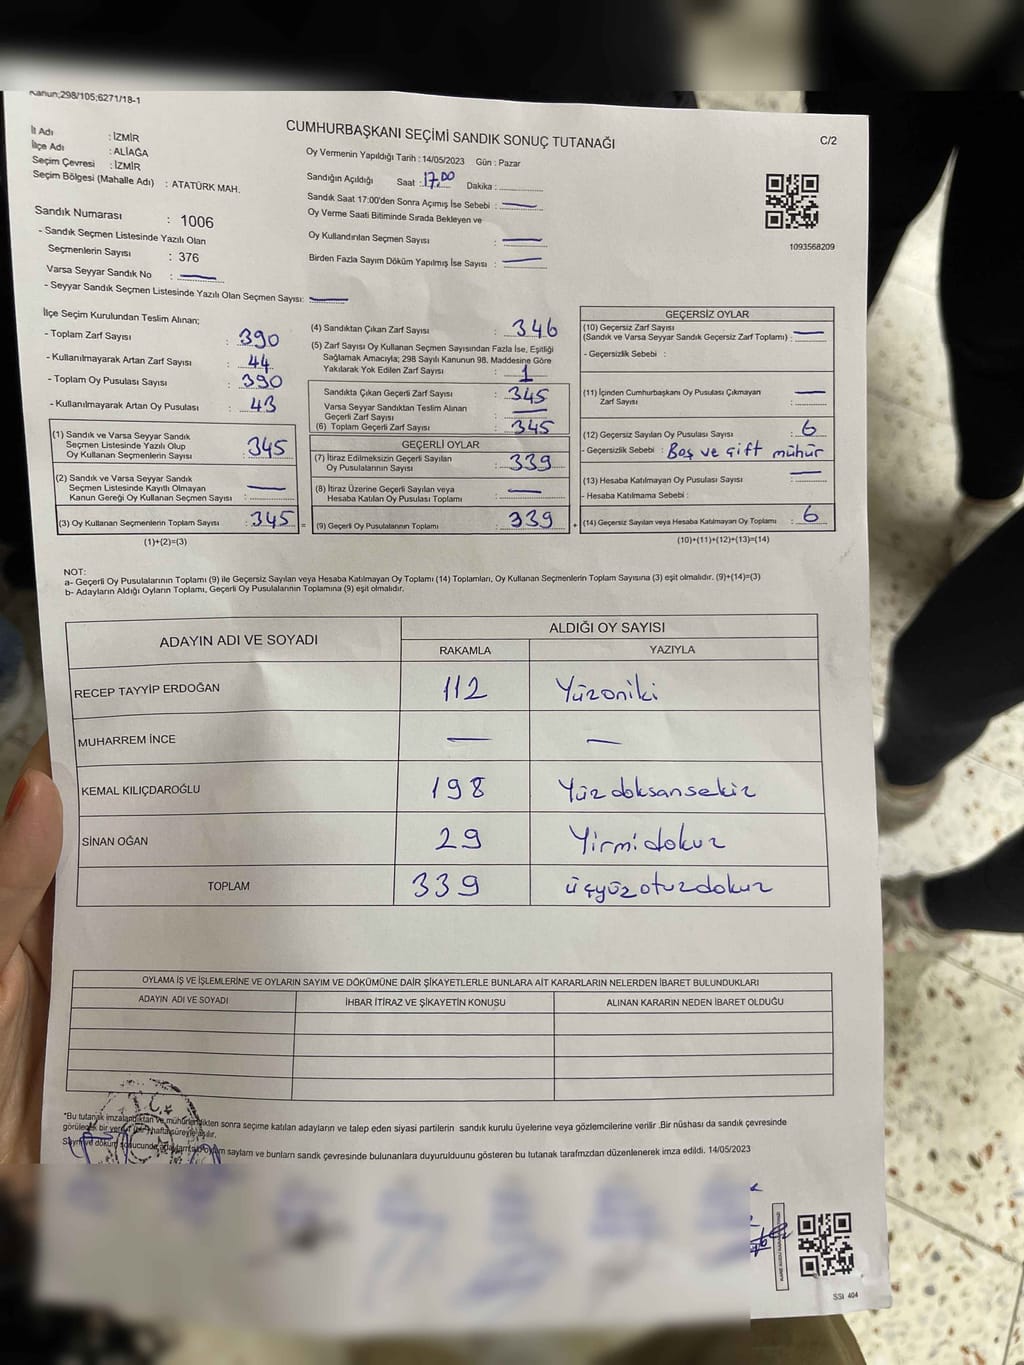 Kanun;298/105;6271/18-1
CUMHURBAŞKANI SEÇİMİ SANDIK SONUÇ TUTANAĞI
C/2
İl Adı : İZMİR
İlçe Adı : ALİAĞA
Seçim Çevresi : İZMİR
Seçim Bölgesi (Mahalle Adı) : ATATÜRK MAH.
Sandık Numarası : 1006
- Sandık Seçmen Listesinde Yazılı Olan
Seçmenlerin Sayısı : 376
Varsa Seyyar Sandık No :
- Seyyar Sandık Seçmen Listesinde Yazılı Olan Seçmen Sayısı:
Oy Vermenin Yapıldığı Tarih : 14/05/2023 Gün : Pazar
Sandığın Açıldığı Saat : 17.00 Dakika :
Sandık Saat 17:00'den Sonra Açımış İse Sebebi :
Oy Verme Saati Bitiminde Sırada Bekleyen ve
Oy Kullandırılan Seçmen Sayısı :
Birden Fazla Sayım Döküm Yapılmış İse Sayısı :
1093568209
İlçe Seçim Kurulundan Teslim Alınan;
- Toplam Zarf Sayısı : 390
- Kullanılmayarak Artan Zarf Sayısı : 44
- Toplam Oy Pusulası Sayısı : 390
- Kullanılmayarak Artan Oy Pusulası : 43
(1) Sandık ve Varsa Seyyar Sandık
Seçmen Listesinde Yazılı Olup
Oy Kullanan Seçmenlerin Sayısı : 345
(2) Sandık ve Varsa Seyyar Sandık
Seçmen Listesinde Kayıtlı Olmayan
Kanun Gereği Oy Kullanan Seçmen Sayısı :
(3) Oy Kullanan Seçmenlerin Toplam Sayısı : 345 =
(1)+(2)=(3)
(4) Sandıktan Çıkan Zarf Sayısı : 346
(5) Zarf Sayısı Oy Kullanan Seçmen Sayısından Fazla İse, Eşitliği
Sağlamak Amacıyla; 298 Sayılı Kanunun 98. Maddesine Göre
Yakılarak Yok Edilen Zarf Sayısı : 1
Sandıkta Çıkan Geçerli Zarf Sayısı : 345
Varsa Seyyar Sandıktan Teslim Alınan
Geçerli Zarf Sayısı :
(6) Toplam Geçerli Zarf Sayısı : 345
GEÇERLİ OYLAR
(7) İtiraz Edilmeksizin Geçerli Sayılan
Oy Pusulalarının Sayısı : 339
(8) İtiraz Üzerine Geçerli Sayılan veya
Hesaba Katılan Oy Pusulası Toplamı :
(9) Geçerli Oy Pusulalarının Toplamı : 339 +
GEÇERSİZ OYLAR
(10) Geçersiz Zarf Sayısı
(Sandık ve Varsa Seyyar Sandık Geçersiz Zarf Toplamı) :
- Geçersizlik Sebebi :
(11) İçinden Cumhurbaşkanı Oy Pusulası Çıkmayan
Zarf Sayısı :
(12) Geçersiz Sayılan Oy Pusulası Sayısı : 6
- Geçersizlik Sebebi : Boş ve çift mühür
(13) Hesaba Katılmayan Oy Pusulası Sayısı :
- Hesaba Katılmama Sebebi :
(14) Geçersiz Sayılan veya Hesaba Katılmayan Oy Toplamı : 6
(10)+(11)+(12)+(13)=(14)
NOT:
a- Geçerli Oy Pusulalarının Toplamı (9) ile Geçersiz Sayılan veya Hesaba Katılmayan Oy Toplamı (14) Toplamları, Oy Kullanan Seçmenlerin Toplam Sayısına (3) eşit olmalıdır. (9)+(14)=(3)
b- Adayların Aldığı Oyların Toplamı, Geçerli Oy Pusulalarının Toplamına (9) eşit olmalıdır.
ADAYIN ADI VE SOYADI
ALDIĞI OY SAYISI
RAKAMLA YAZIYLA
RECEP TAYYİP ERDOĞAN 112 Yüzoniki
MUHARREM İNCE
KEMAL KILIÇDAROĞLU 198 Yüz doksansekiz
SİNAN OĞAN 29 Yirmidokuz
TOPLAM 339 üçyüzotuzdokuz
OYLAMA İŞ VE İŞLEMLERİNE VE OYLARIN SAYIM VE DÖKÜMÜNE DAİR ŞİKAYETLERLE BUNLARA AİT KARARLARIN NELERDEN İBARET BULUNDUKLARI
ADAYIN ADI VE SOYADI İHBAR İTİRAZ VE ŞİKAYETİN KONUSU ALINAN KARARIN NEDEN İBARET OLDUĞU
*Bu tutanak imzalandıktan ve mühürlendikten sonra seçime katılan adayların ve talep eden siyasi partilerin sandık kurulu üyelerine veya gözlemcilerine verilir .Bir nüshası da sandık çevresinde
görülecek bir yere bir hafta süreyle asılır.
Sayım ve döküm sonucunda, saylam ve bunların sandık çevresinde bulunanlara duyurulduunu gösteren bu tutanak tarafmzdan düzenlenerek imza edildi. 14/05/2023
SSI 404